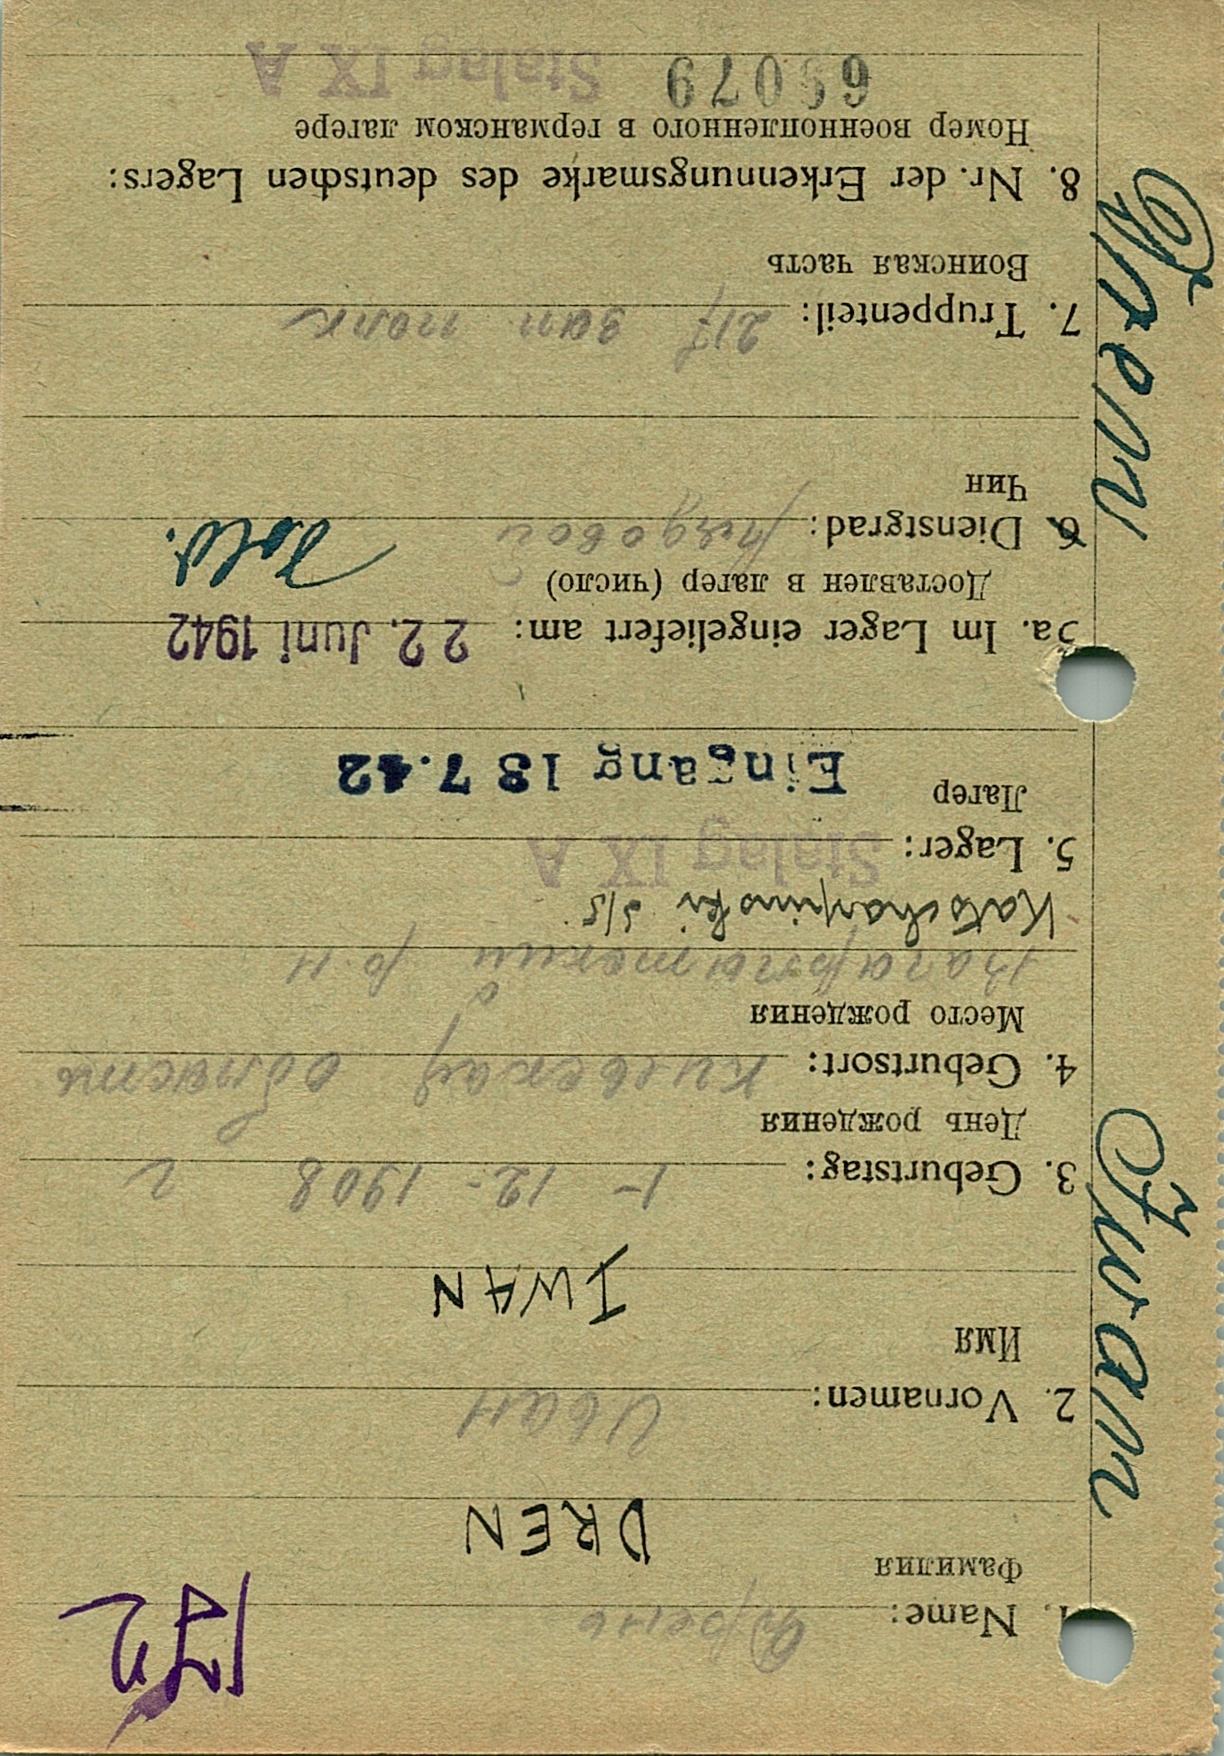 172
1. Name: Дрень
Фамилия
DREN
2. Vornamen: Иван
Имя
IWAN
3. Geburtstag: 1 - 12 - 1908 г
День рождения
4. Geburtsort: Киевская область
Место рождения
р-н
5. Lager: Stalag IX A
Лагер
Eingang 13 7.42
5a. Im Lager eingeliefert am: 22. Juni 1942
Доставлен в лагер (число)
6. Dienstgrad: рядовой Sold.
Чин
7. Truppenteil: 217 зап полк
Воинская часть
8. Nr. der Erkennungsmarke des deutschen Lagers:
Номер военнопленного в германском лагере
69079 Stalag IX A
Iwan Dren